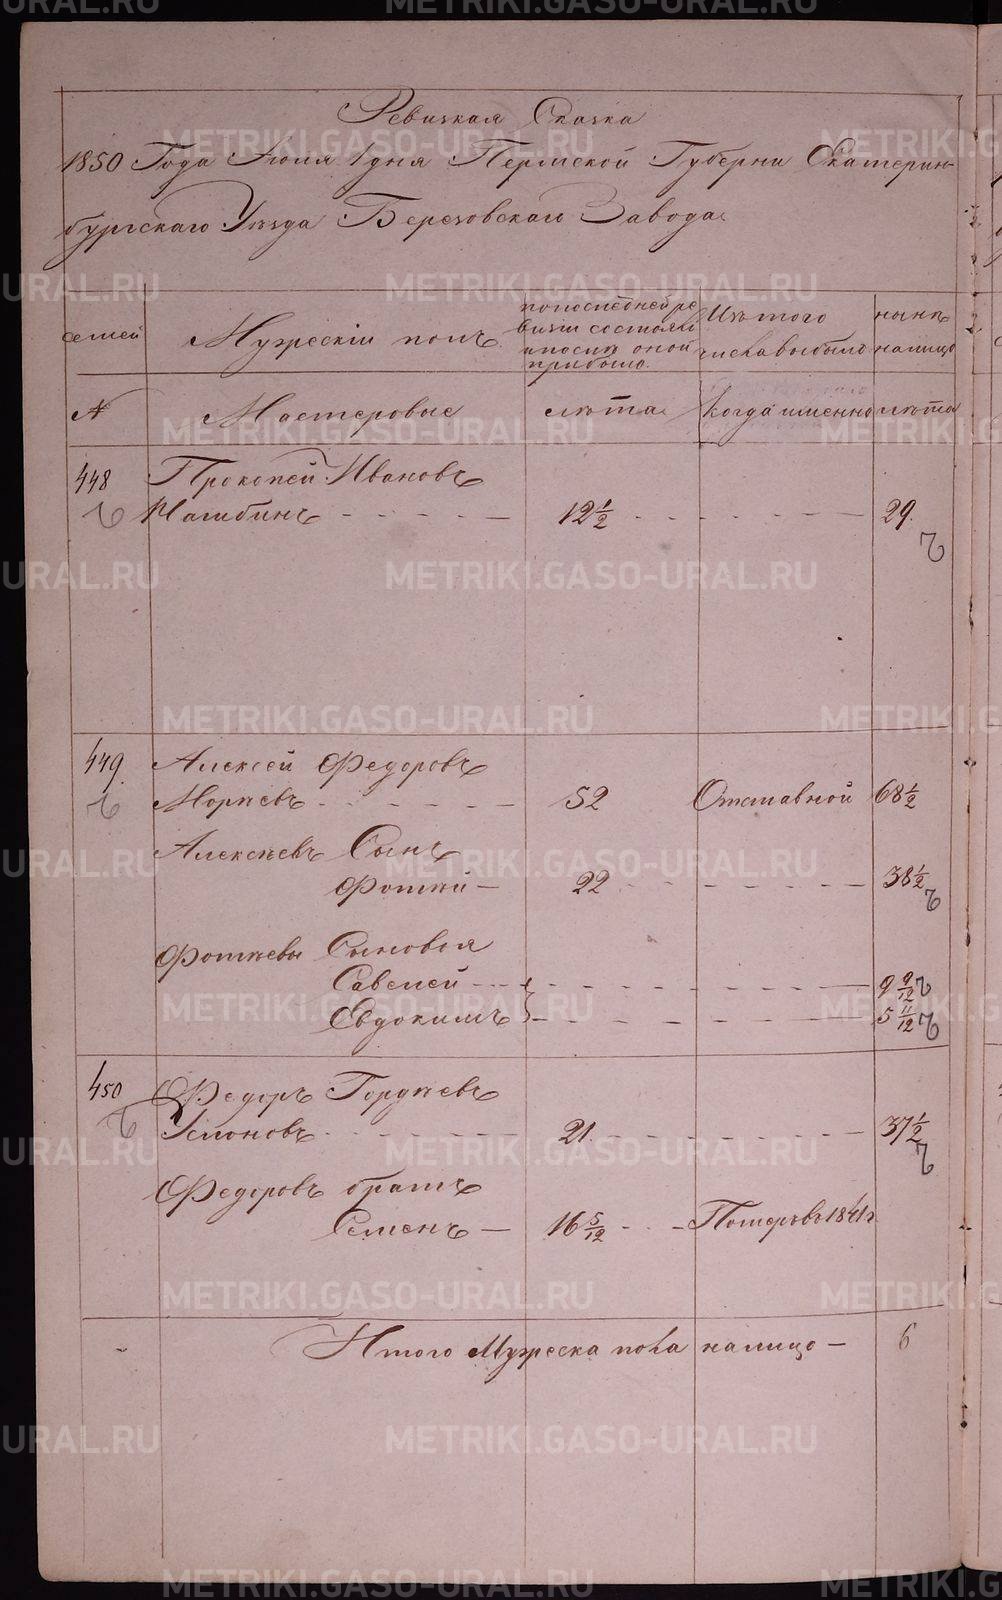 Ревизкая Сказка
1850 Года Июля 1 дня Пермской Губерни Екатерин-
бургскаго Уѣзда Березовскаго Завода
семей
Мужескій полъ
попоследней ре
визiи состояло
и послѣ оной
прибыло.
Изътого
числа выбыло
нынѣ
налицо
№
Мастеровые
лѣта
когда именно
лѣта
448 Прокопей Ивановъ
12 1/2 29.
449. Алексей Федоровъ
52 Отставной 68 1/2
Алексѣевъ Сынъ
Фотѣй 22 38 1/2
Фотѣевы Сыновья
Савелей 9 9/12
Евдокимъ 5 11/12
450 Федоръ Гордѣевъ
Усмоновъ 21. 37 1/2
Федоровъ братъ
Семенъ 16 5/12 1841
Итого Мужеска пола налицо — 6
METRIKI.GASO-URAL.RU